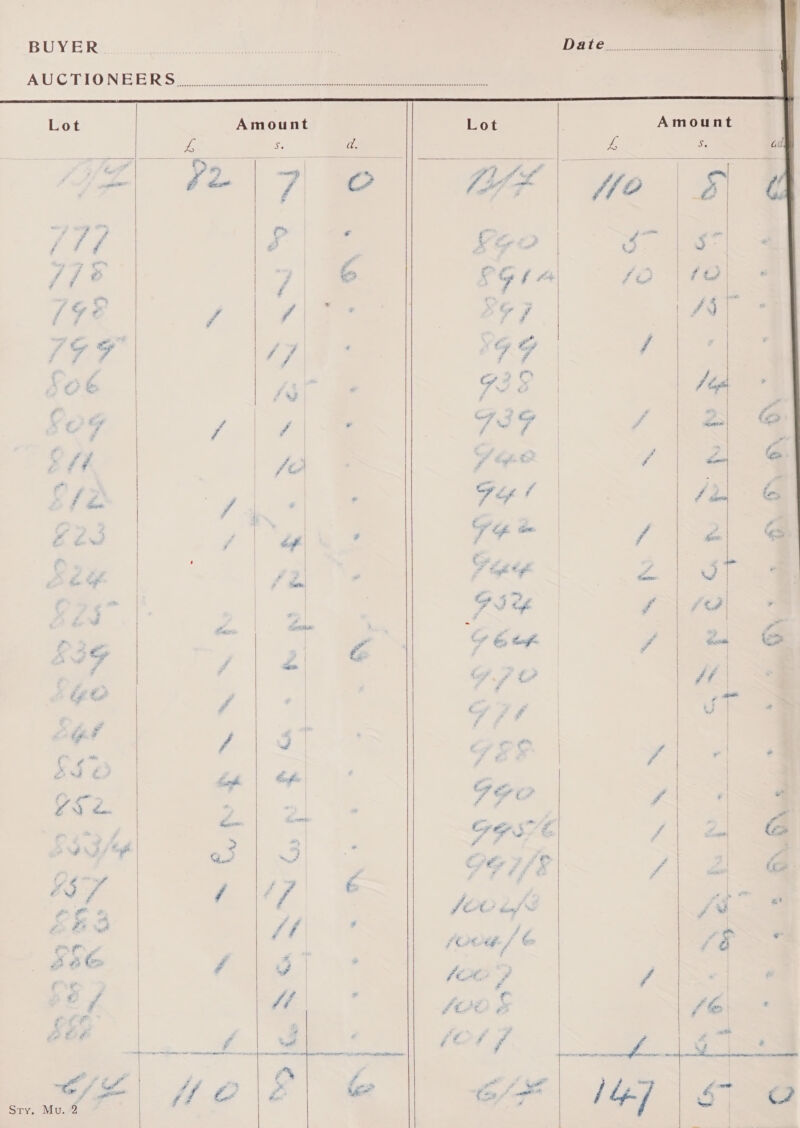 BUYER
Date
AUCTIONEERS
Lot Amount
£ s. d.
B/F 82 7 0
777 8 .
778 7 6
798 1 1 .
799 17 .
806 15 .
809 1 1 .
811 10
812 1 . .
823 1 4 .
824 12 .
825 2 2 .
839 1 2 6
840 1 .
841 1 5 .
850 4 4 .
852 2 2 .
853/4 3 3 .
857 1 17 6
883 11 .
886 1 5 .
887 11 .
888 1 3 .
C/F 110 8 6
Sty. Mu. 2
Lot Amount
£ s. d.
B/F 110 8 6
890 5 5 .
891A 10 10 .
897 15 .
899 1 . .
938 14 .
939 1 2 6
940 1 2 6
941 12 6
942 1 2 6
944 2 5 .
954 1 10 .
964 1 2 6
970 11 .
971 5 .
988 1 . .
990 1 . .
995/6 1 2 6
997/8 1 2 6
1002/3 15 .
1004/6 18 .
1007 1 . .
1008 16 .
1017 1 5 .
C/F 147 5 0